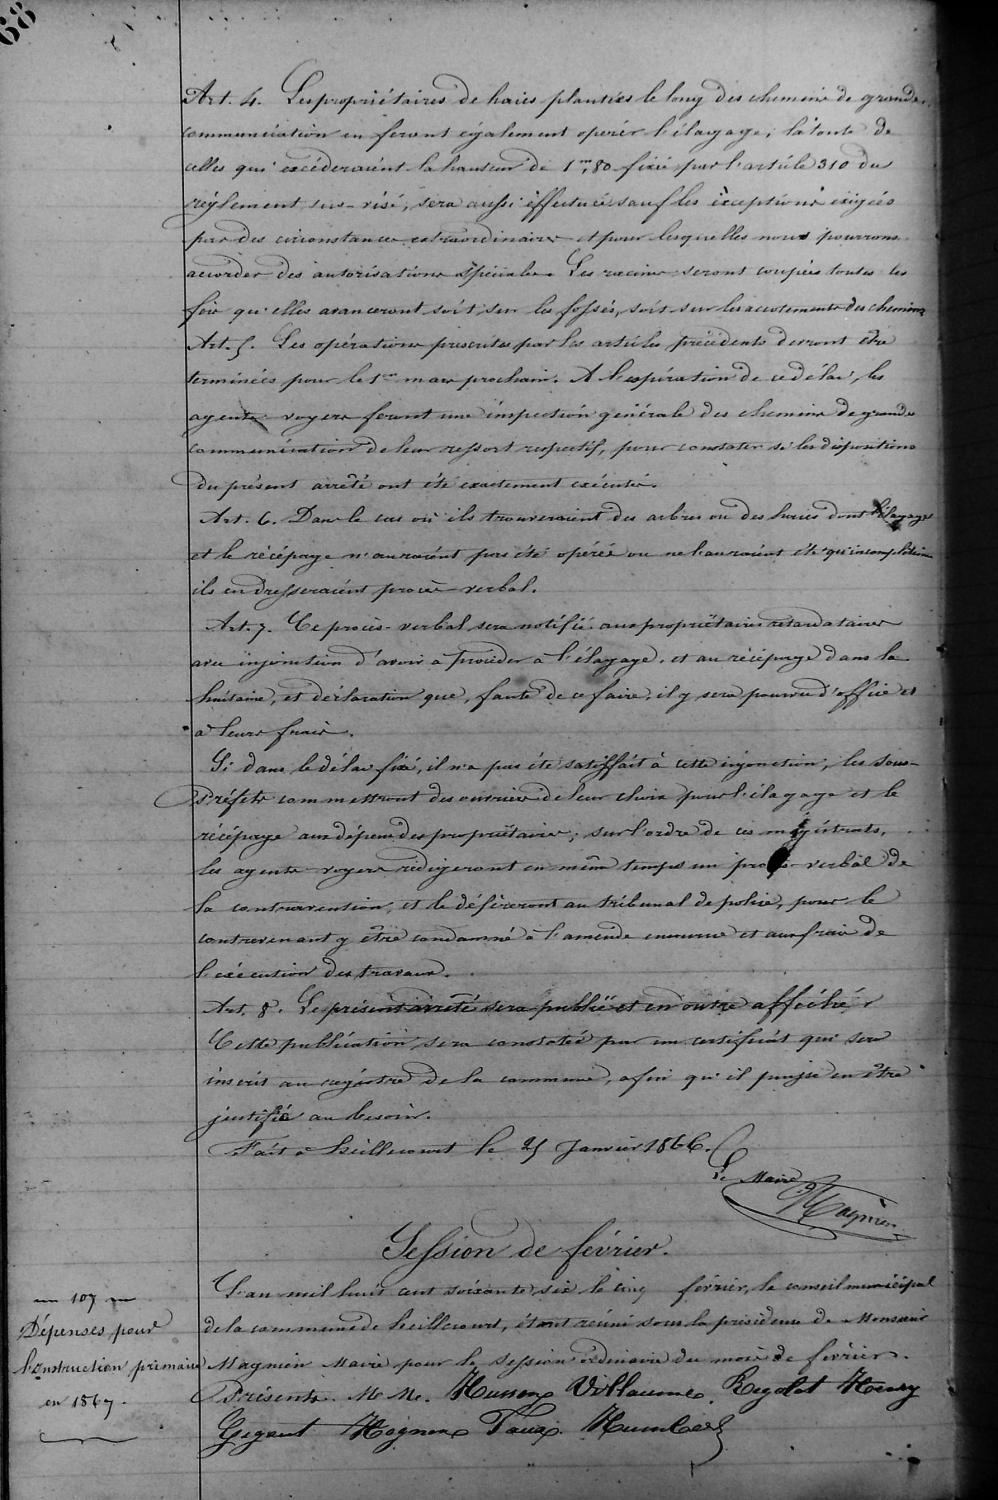 68
Art. 4. Les propriétaires de haies plantées le long des chemins de grande
communication en feront également opérer l'élagage; la tonte de
celles qui excéderaient la hauteur de 1m,80 fixé par l'article 310 du
règlement sus-visé, sera aussi effectuée sauf les exceptions exigées
par des circonstances extraordinaires et pour lesquelles nous pourrons
accorder des autorisations spéciales. Les racines seront coupées toutes les
fois qu'elles avanceront soit sur les fossés, soit sur les accotements des chemins
Art. 5. Les opérations prescrites par les articles précédents devront être
terminées pour le 1er mars prochain. A l'expiration de ce délai, les
agents-voyers feront une inspection générale des chemins de grande
communication de leur ressort respectif, pour constater si les dispositions
du présent arrêté ont été exactement exécutés.
Art. 6. Dans le cas où ils trouveraient des arbres ou des haies dont l'élagage
et le récépage n'auraient pas été opérés ou ne l'auraient été qu'incomplètement
ils en dresseraient procès-verbal.
Art. 7. Ce procès-verbal sera notifié aux propriétaires retardataires
avec injonction d'avoir à procéder à l'élagage, et au récépage dans la
huitaine, et déclaration que, faute de ce faire, il y sera pourvu d'office et
à leurs frais.
Si dans le délai fixé, il n'a pas été satisfait à cette injonction, les Sous-
Préfets commettront des ouvriers de leur choix pour l'élagage et le
récépage aux dépens des propriétaires; sur l'ordre de ces magistrats,
les agents-voyers rédigeront en même temps un procès-verbal de
la contravention, et le défèreront au tribunal de police, pour le
contrevenant y être condamné à l'amende encourue et aux frais de
l'exécution des travaux.
Art. 8. Le présent arrêté sera publié et en outre affiché,
Cette publication sera constatée par un certificat qui sera
inscrit au registre de la commune, afin qu'il puisse en être
justifié au besoin.
Fait à heillecourt le 25 Janvier 1866.
Le Maire
Magnien
Session de février.
107
Dépenses pour
l'instruction primaire
en 1867.
L'an mil huit cent soixante six le cinq février, le conseil municipal
de la commune de heillecourt, étant réuni sous la présidence de Monsieur
Magnien Maire pour la session ordinaire du mois de février.
Présents. M M. Husson Villaume Regolot Henry
Gegout Magnien Humbert